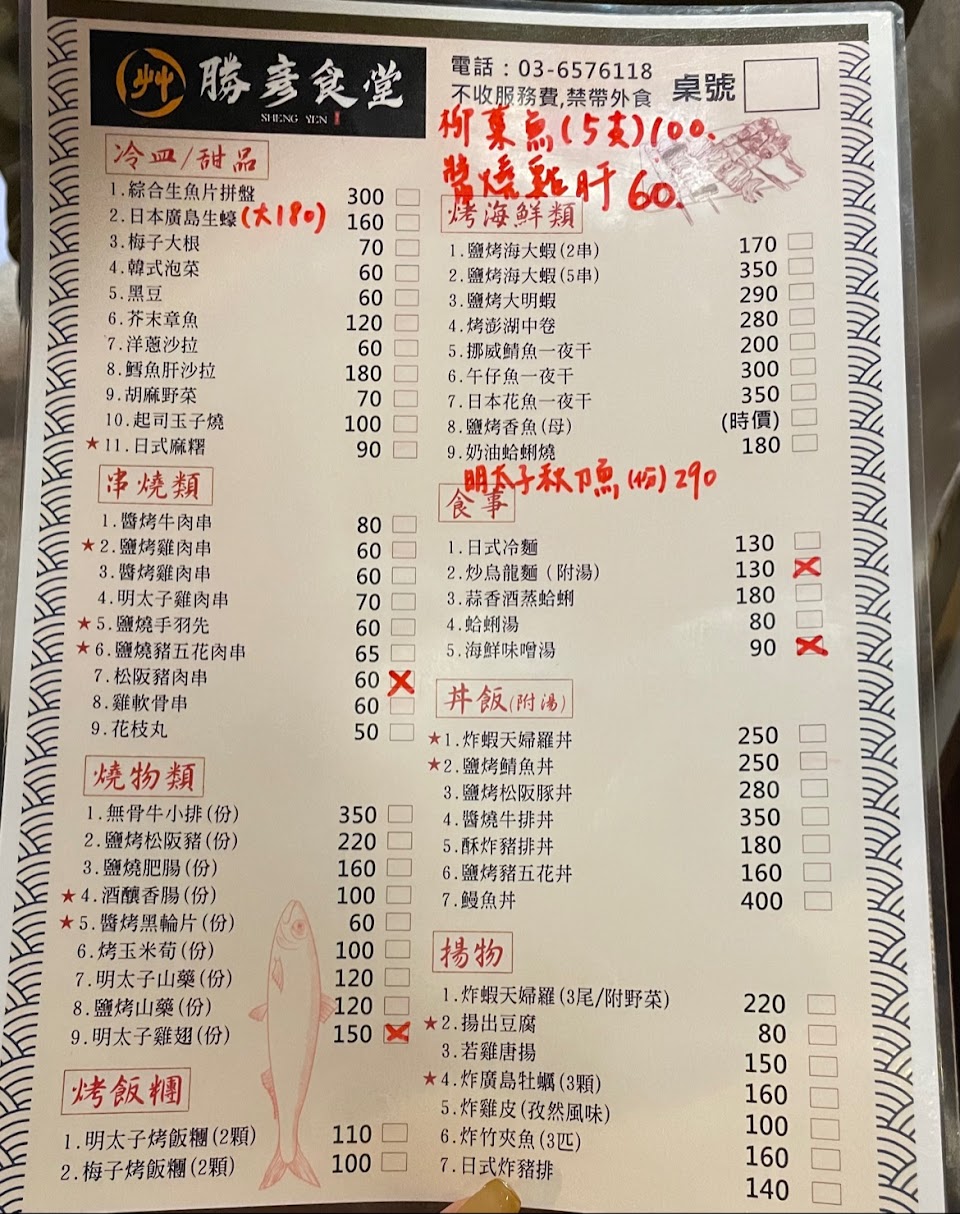 艸 勝彥食堂
SHENG YEN
電話：03-6576118
不收服務費,禁帶外食
桌號
柳葉魚(5支)100.
醬燒雞肝60.
冷皿/甜品
1.綜合生魚片拼盤 300
2.日本廣島生蠔(大180) 160
3.梅子大根 70
4.韓式泡菜 60
5.黑豆 60
6.芥末章魚 120
7.洋蔥沙拉 60
8.鱈魚肝沙拉 180
9.胡麻野菜 70
10.起司玉子燒 100
★11.日式麻糬 90
串燒類
1.醬烤牛肉串 80
★2.鹽烤雞肉串 60
3.醬烤雞肉串 60
4.明太子雞肉串 70
★5.鹽燒手羽先 60
★6.鹽燒豬五花肉串 65
7.松阪豬肉串 60
8.雞軟骨串 60
9.花枝丸 50
燒物類
1.無骨牛小排(份) 350
2.鹽烤松阪豬(份) 220
3.鹽燒肥腸(份) 160
★4.酒釀香腸(份) 100
★5.醬烤黑輪片(份) 60
6.烤玉米荀(份) 100
7.明太子山藥(份) 120
8.鹽烤山藥(份) 120
9.明太子雞翅(份) 150
烤飯糰
1.明太子烤飯糰(2顆) 110
2.梅子烤飯糰(2顆) 100
烤海鮮類
1.鹽烤海大蝦(2串) 170
2.鹽烤海大蝦(5串) 350
3.鹽烤大明蝦 290
4.烤澎湖中卷 280
5.挪威鯖魚一夜干 200
6.午仔魚一夜干 300
7.日本花魚一夜干 350
8.鹽烤香魚(母) (時價)
9.奶油蛤蜊燒 180
明太子秋刀魚(份)290
食事
1.日式冷麵 130
2.炒烏龍麵（附湯） 130
3.蒜香酒蒸蛤蜊 180
4.蛤蜊湯 80
5.海鮮味噌湯 90
丼飯(附湯)
★1.炸蝦天婦羅丼 250
★2.鹽烤鯖魚丼 250
3.鹽烤松阪豚丼 280
4.醬燒牛排丼 350
5.酥炸豬排丼 180
6.鹽烤豬五花丼 160
7.鰻魚丼 400
揚物
1.炸蝦天婦羅(3尾/附野菜) 220
★2.揚出豆腐 80
3.若雞唐揚 150
★4.炸廣島牡蠣(3顆) 160
5.炸雞皮(孜然風味) 100
6.炸竹夾魚(3匹) 160
7.日式炸豬排 140